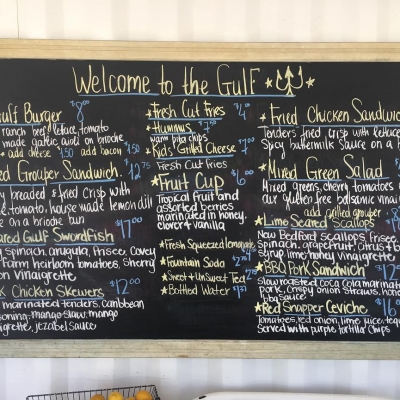 Welcome to the Gulf
Gulf Burger $8.00
ranch beef, lettuce, tomato
made garlic aioli on brioche
+ add cheese $1.50 add bacon $1.50
Grouper Sandwich $12.75
breaded & fried crisp with
tomato, house made lemon dill
on a brioche bun
Seared Gulf Swordfish $17.00
spinach, arugula, frisee, Covey
Farm heirloom tomatoes, Sherry
vinaigrette
Chicken Skewers $12.00
marinated tenders, caribbean
mango slaw, mango
jezabel sauce
Fresh Cut Fries $4.00
Hummus $7.50
warm pita chips
Kid's Grilled Cheese $7.00
Fresh Cut Fries
Fruit Cup $6.00
Tropical fruit and
assorted berries
marinated in honey,
clover & vanilla
Fresh Squeezed Lemonade
Fountain Soda
Sweet & UnSweet Tea
Bottled Water
Fried Chicken Sandwich
Tenders fried crisp with lettuce
spicy buttermilk sauce on a
Mixed Green Salad
Mixed greens, cherry tomatoes
gluten free balsamic
add grilled grouper
Lime Seared Scallops
New Bedford Scallops, frisee,
spinach, grapefruit citrus
syrup lime honey vinaigrette
BBQ Pork Sandwich $12
slow roasted coca cola marinated
pork, crispy onion straws, house
bbq sauce
Red Snapper Ceviche $16
Tomatoes, red onion, lime juice, tequila
served with purple tortilla chips